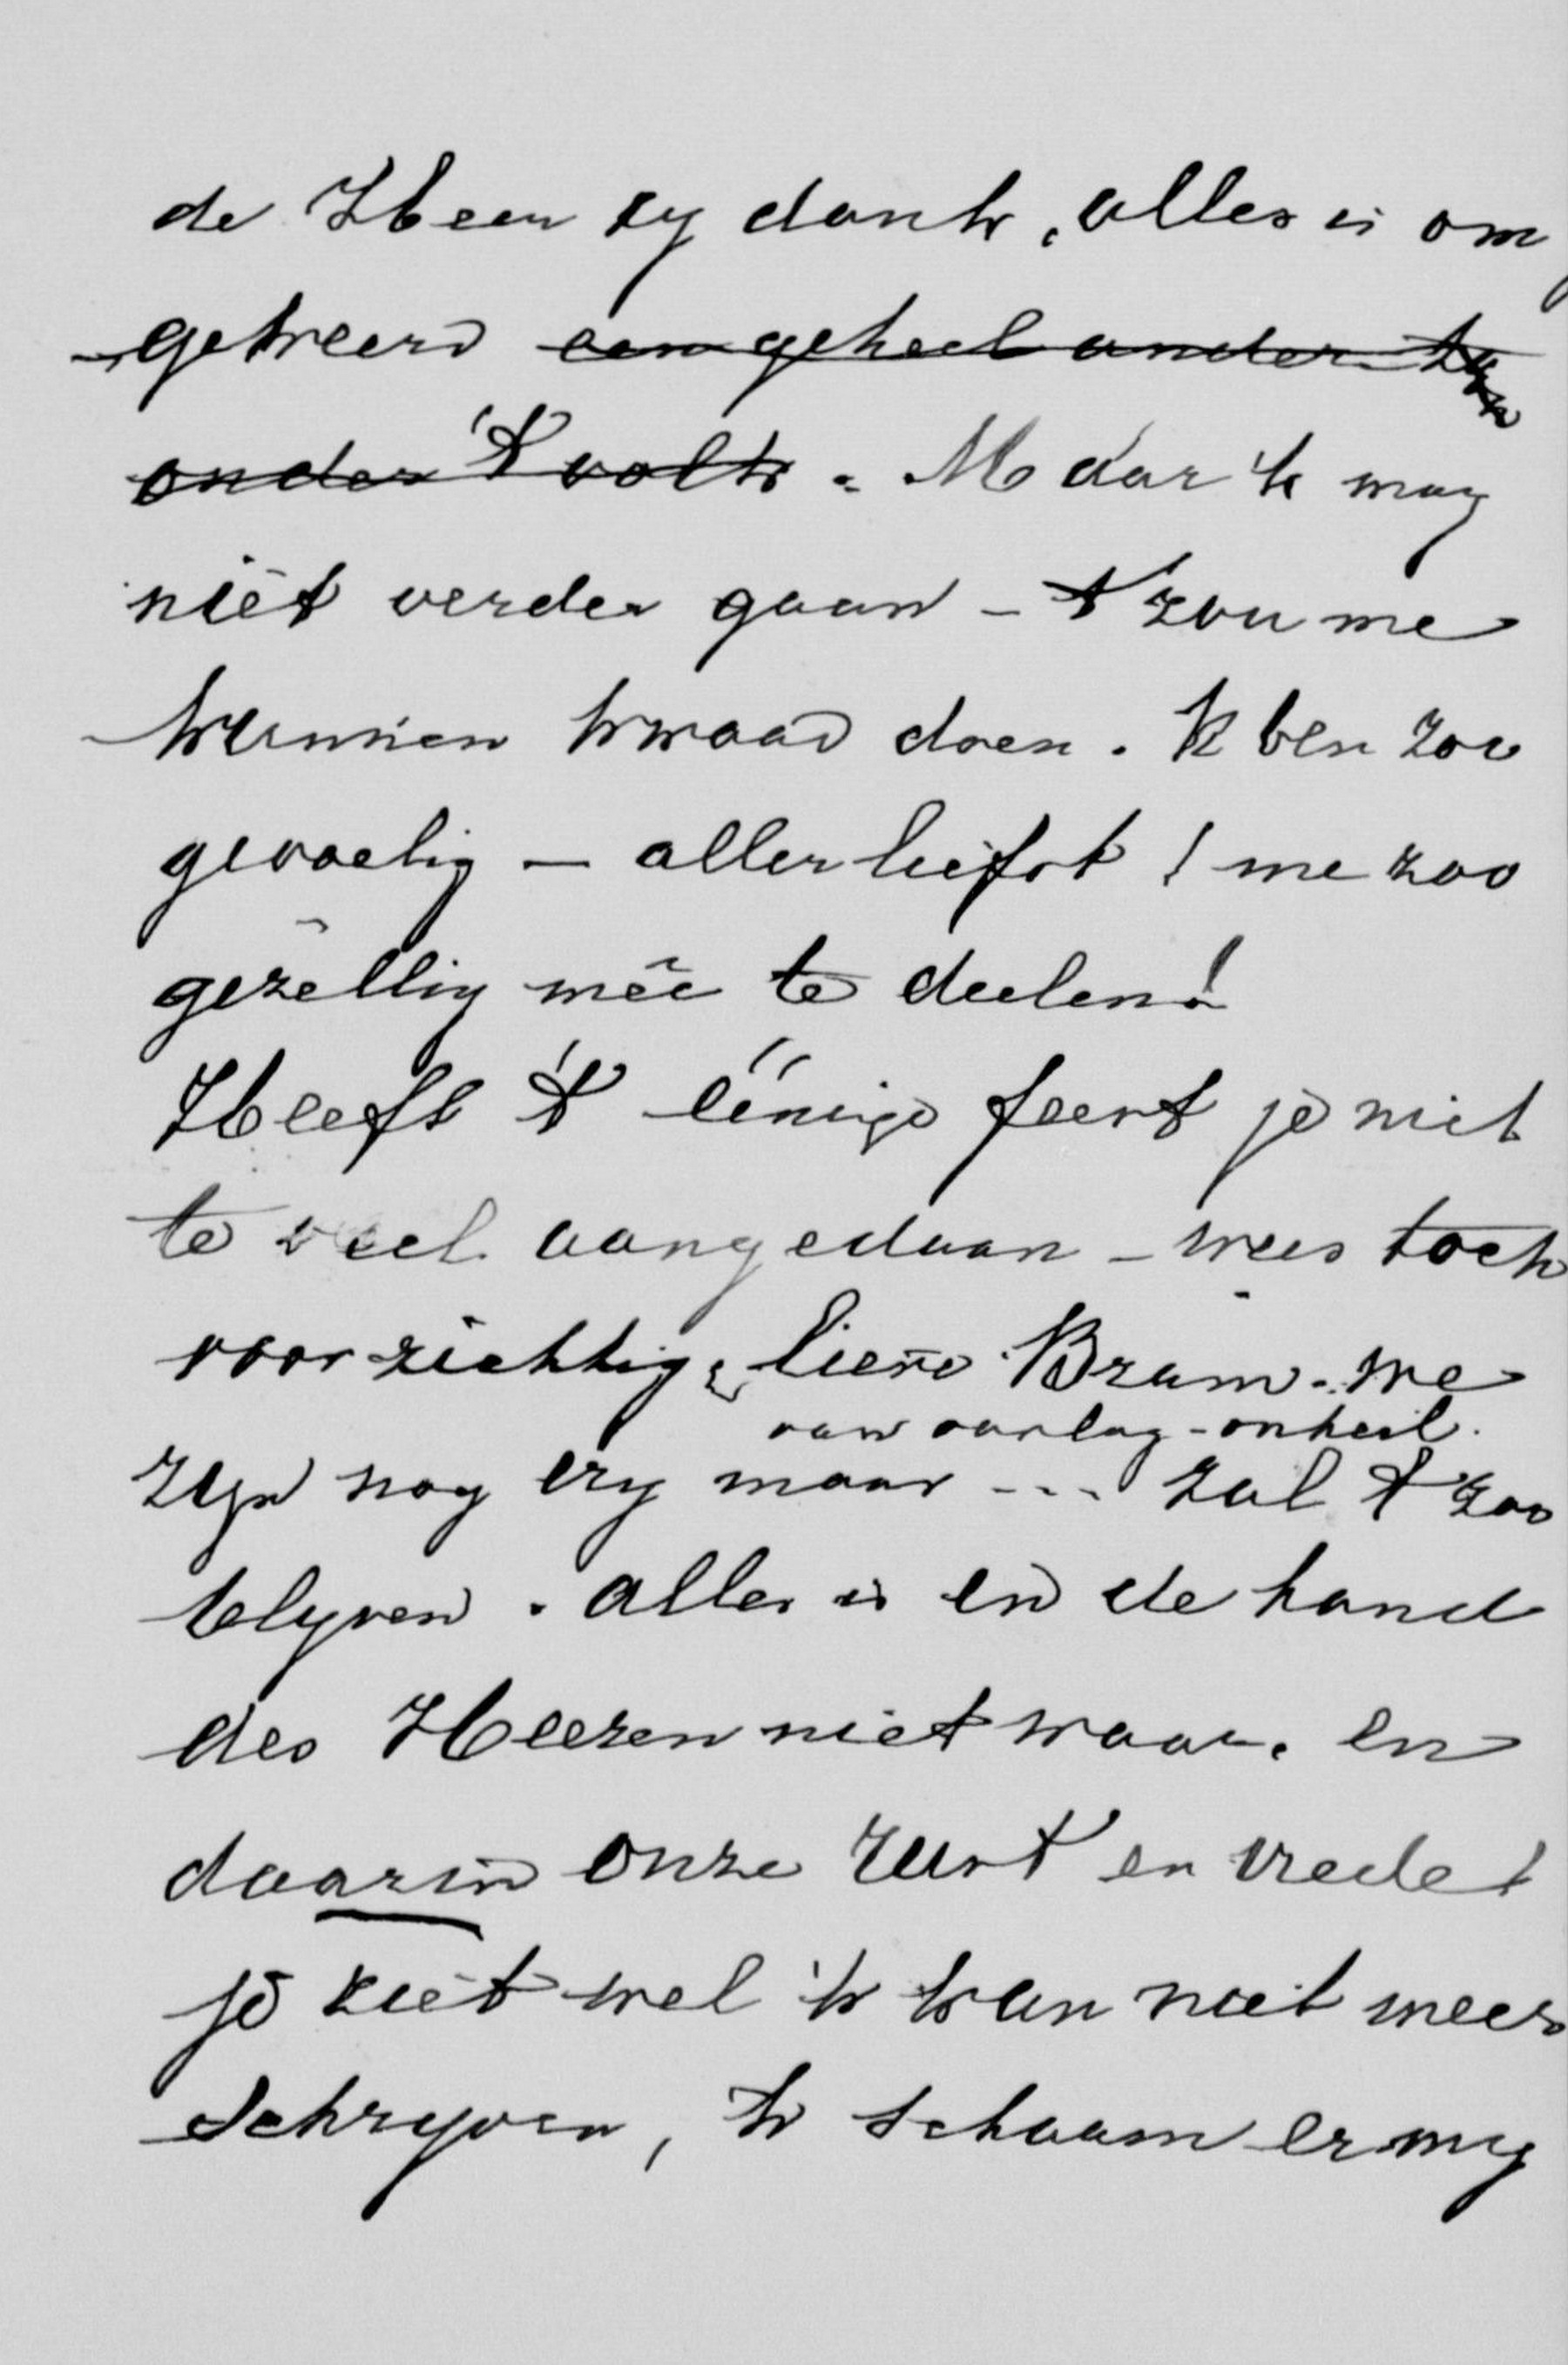 de Heer zy dank, alles is om
gekeerd een geheel ander
onder 't volk. Maar 'k mag
niet verder gaan - 't zou me
kunnen kwaad doen. 'k ben zoo
gevoelig — allerliefst! me zoo
gezellig meê te deelen!
Heeft 't éénige feest je niet
te veel aangedaan - wees toch
voorzichtig, lieve Bram. We
van oorlog-onheil.
zyn nog vry maar --- zal 't zoo
blyven. alles is in de hand
des Heeren niet waar. en
daarin onze rust en vrede!
je ziet wel 'k kan niet meer
schryven, 'k schaam er my